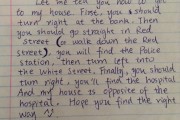 Let me tell you how to get
to my house. First, you should
turn right at the bank. Then
you should go straight in Red
Street (or walk down the Red
street), you will find the Police
station, then turn left into
the White Street. Finally, you should
turn right, you'll find the hospital
And my house is opposite of the
hospital. Hope you find the right
way